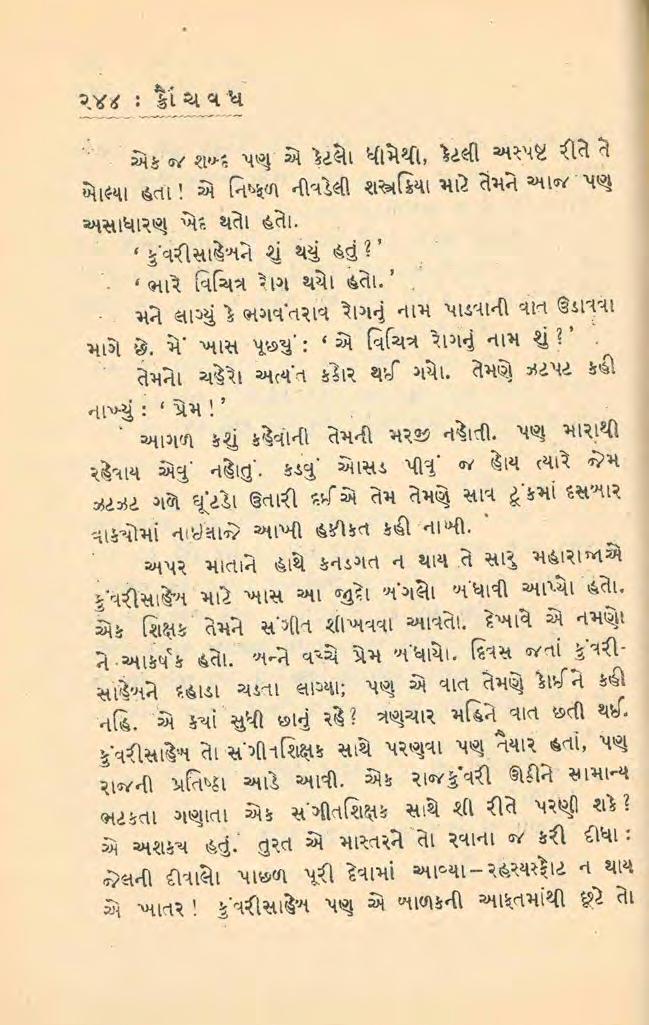 ૨૪૪ : ક્રૌંચવધ
એક જ શબ્દ પણ એ કેટલો ધીમેથી, કેટલી અસ્પષ્ટ રીતે તે
બોલ્યા હતા! એ નિષ્ફળ નીવડેલી શસ્ત્રક્રિયા માટે તેમને આજ પણ
અસાધારણ ખેદ થતો હતો.
‘કુંવરીસાહેબને શું થયું હતું?’
‘ભારે વિચિત્ર રોગ થયો હતો.’
મને લાગ્યું કે ભગવંતરાવ રોગનું નામ પાડવાની વાત ઉડાવવા
માગે છે. મેં ખાસ પૂછ્યું : ‘એ વિચિત્ર રોગનું નામ શું?’
તેમનો ચહેરો અત્યંત કઠોર થઈ ગયો. તેમણે ઝટપટ કહી
નાખ્યું : ‘પ્રેમ!’
આગળ કશું કહેવાની તેમની મરજી નહોતી. પણ મારાથી
રહેવાય એવું નહોતું. કડવું ઓસડ પીવું જ હોય ત્યારે જેમ
ઝટઝટ ગળે ઘૂંટડો ઉતારી દઈએ તેમ તેમણે સાવ ટૂંકમાં દસબાર
વાક્યોમાં નાઇલાજે આખી હકીકત કહી નાખી.
અપર માતાને હાથે કનડગત ન થાય તે સારુ મહારાજાએ
કુંવરીસાહેબ માટે ખાસ આ જુદો બંગલો બંધાવી આપ્યો હતો.
એક શિક્ષક તેમને સંગીત શીખવવા આવતો. દેખાવે એ નમણો
ને આકર્ષક હતો. બન્ને વચ્ચે પ્રેમ બંધાયો. દિવસ જતાં કુંવરી-
સાહેબને દહાડા ચડતા લાગ્યા; પણ એ વાત તેમણે કોઈને કહી
નહિ. એ ક્યાં સુધી છાનું રહે? ત્રણચાર મહિને વાત છતી થઈ.
કુંવરીસાહેબ તો સંગીતશિક્ષક સાથે પરણવા પણ તૈયાર હતાં, પણ
રાજની પ્રતિષ્ઠા આડે આવી. એક રાજકુંવરી ઊઠીને સામાન્ય
ભટકતા ગણાતા એક સંગીતશિક્ષક સાથે શી રીતે પરણી શકે?
એ અશક્ય હતું. તુરત એ માસ્તરને તો રવાના જ કરી દીધા :
જેલની દીવાલો પાછળ પૂરી દેવામાં આવ્યા – રહસ્યસ્ફોટ ન થાય
એ ખાતર! કુંવરીસાહેબ પણ એ બાળકની આફતમાંથી છૂટે તો